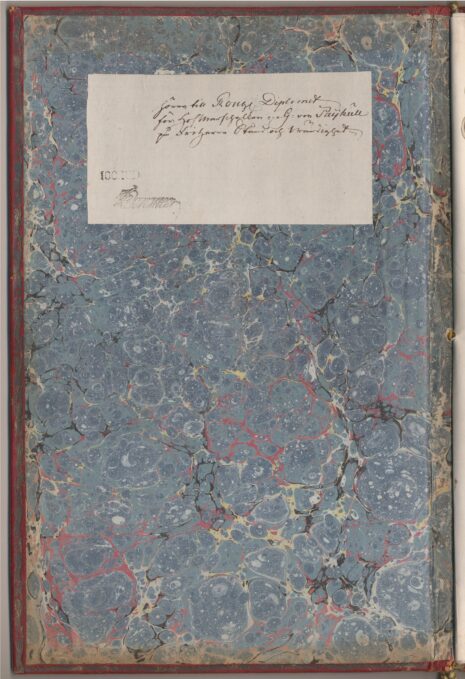 hörer till Kongl. Diplomet
för Hof Marschallen von Paijkull
på Friherre Stånd och Värdighet
100